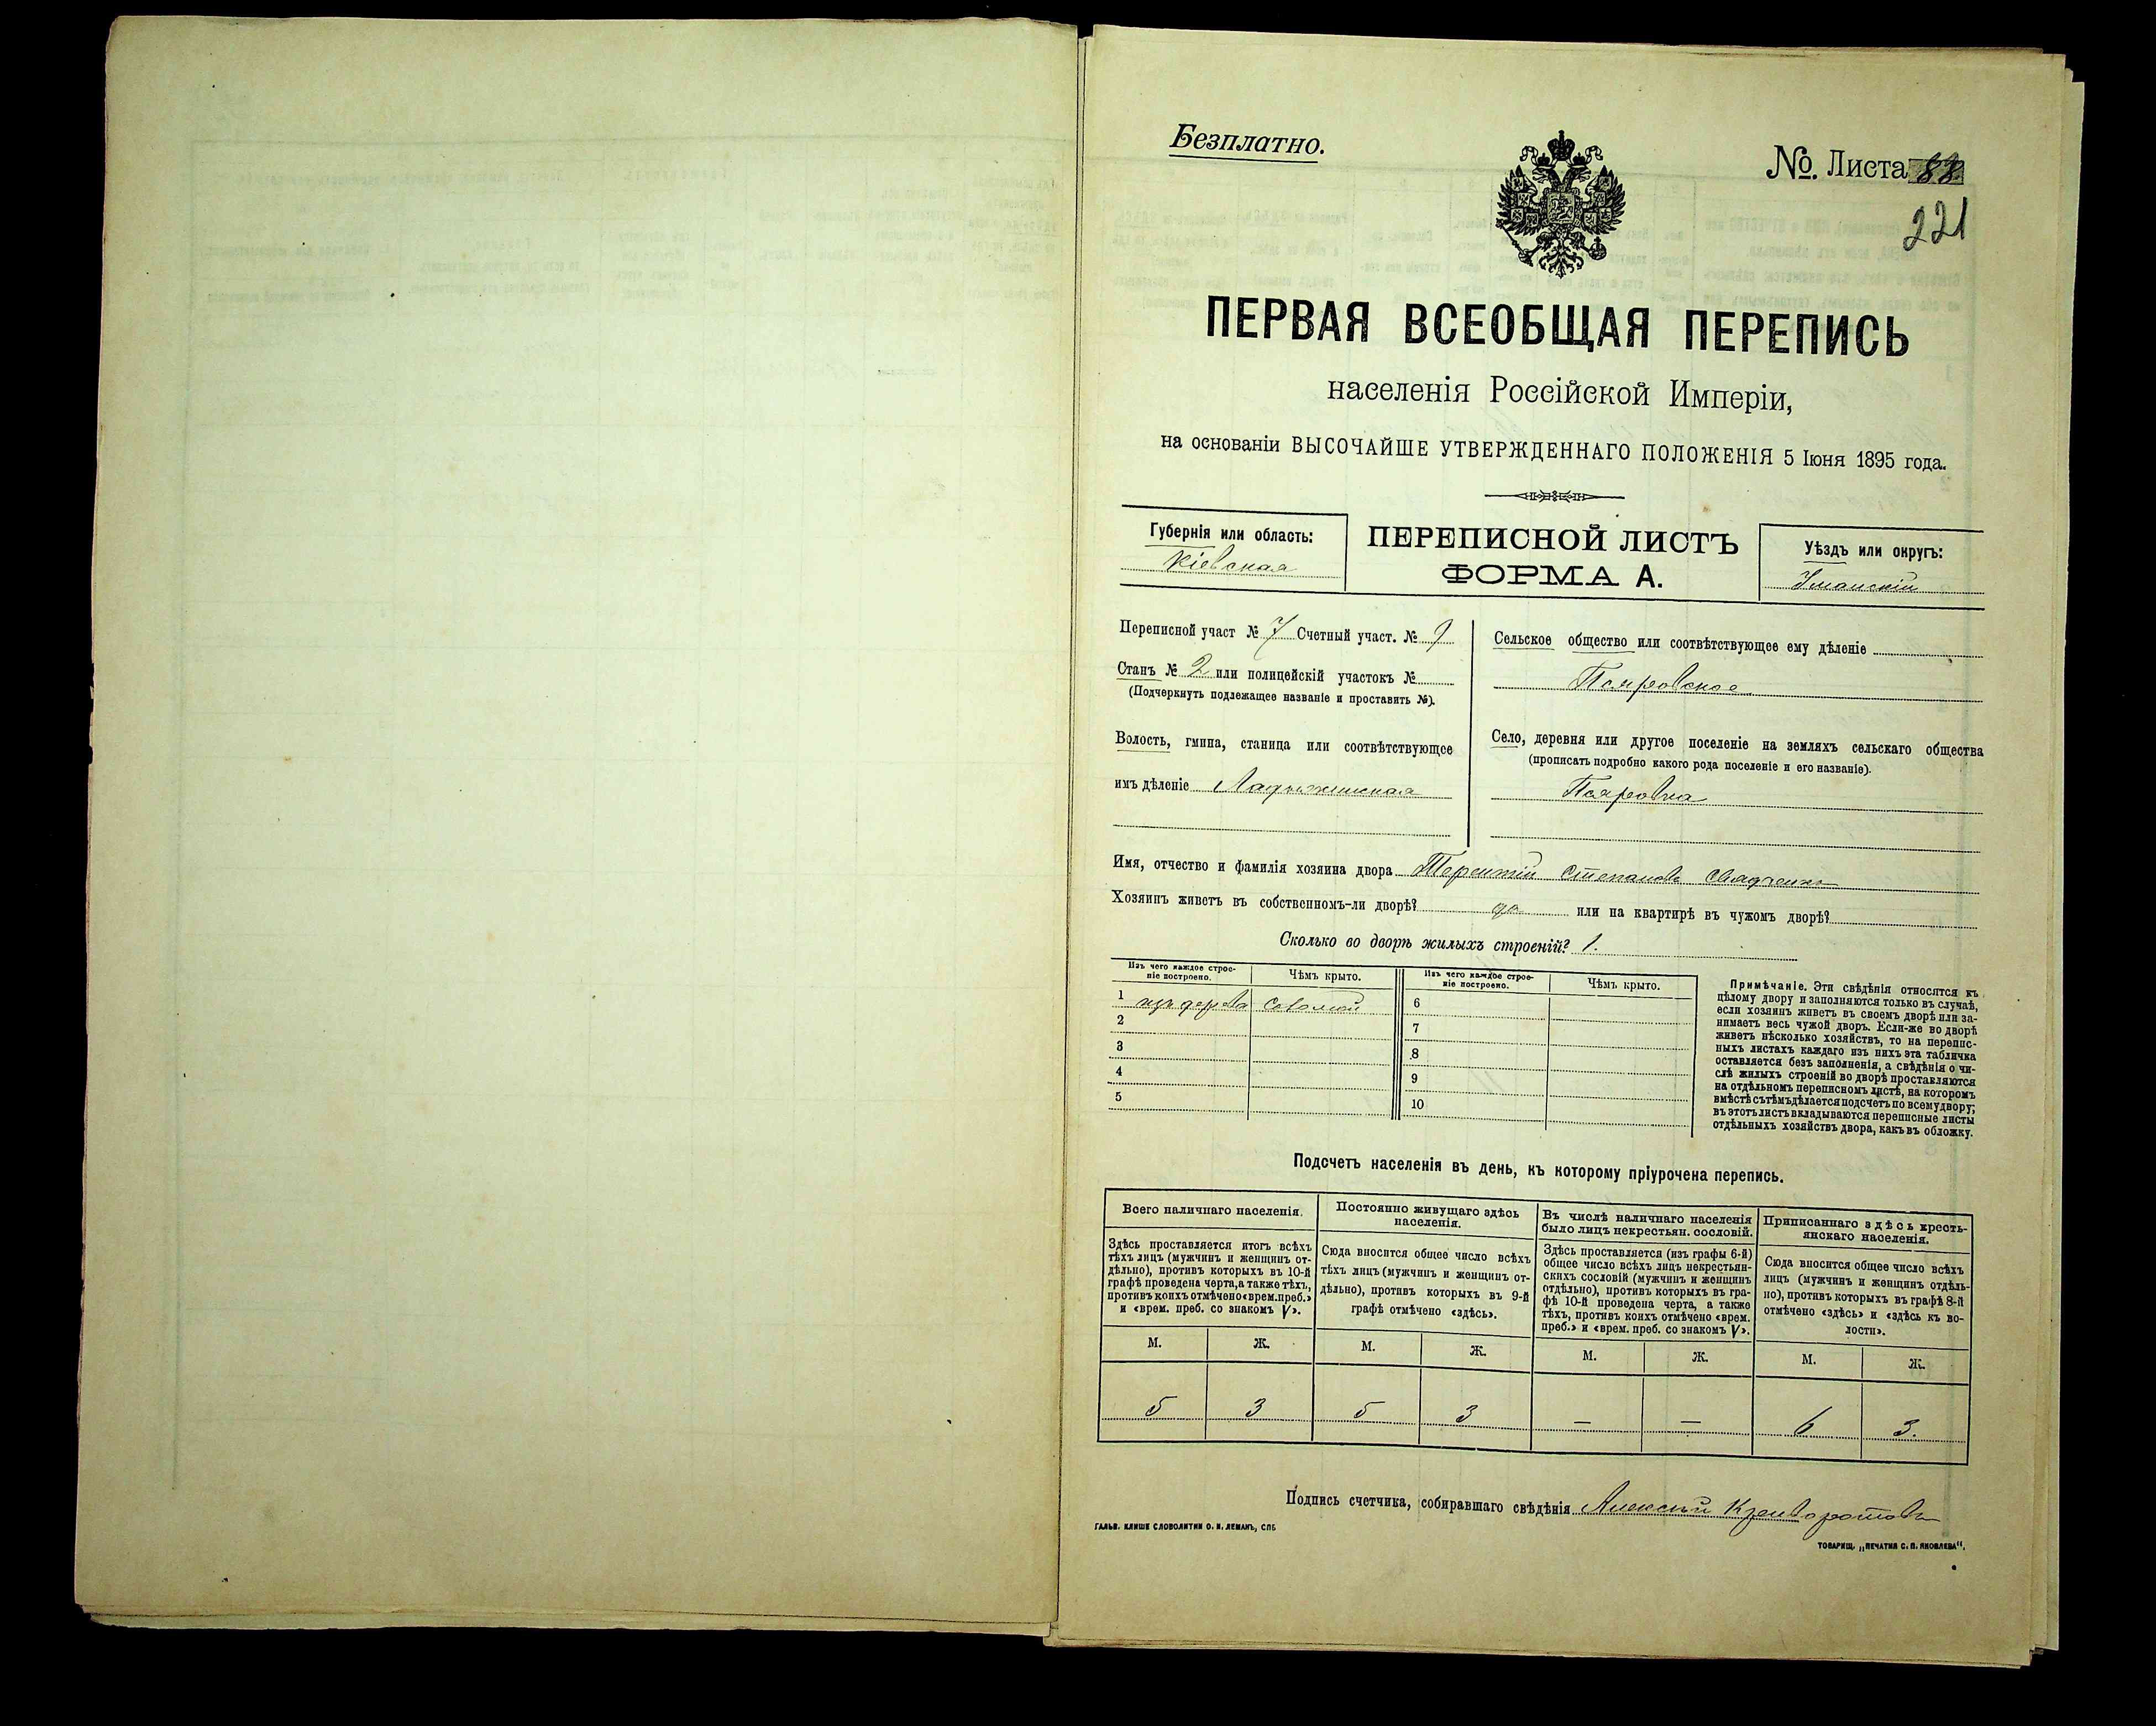 Безплатно.
№. Листа 88
221
ПЕРВАЯ ВСЕОБЩАЯ ПЕРЕПИСЬ
населенія Россійской Имперіи,
на основаніи ВЫСОЧАЙШЕ УТВЕРЖДЕННАГО ПОЛОЖЕНІЯ 5 Іюня 1895 года.
Губернія или область:
Кіевская
ПЕРЕПИСНОЙ ЛИСТЪ
ФОРМА А.
Уѣздъ или округъ:
Уманскій
Переписной участ № 7 Счетный участ. №
Станъ № 2 или полицейскій участокъ №
(Подчеркнуть подлежащее названіе и проставить №).
Волость, гмина, станица или соотвѣтствующее
имъ дѣленіе Ладыжинская
Сельское общество или соотвѣтствующее ему дѣленіе
Село, деревня или другое поселеніе на земляхъ сельскаго общества
(прописать подробно какого рода поселеніе и его названіе).
Имя, отчество и фамилія хозяина двора Терентій Степановъ
Хозяинъ живетъ въ собственномъ-ли дворѣ? да или на квартирѣ въ чужомъ дворѣ?
Сколько во дворѣ жилыхъ строеній? 1.
Изъ чего каждое строе-
ніе построено.
Чѣмъ крыто.
Изъ чего каждое строе-
ніе построено.
Чѣмъ крыто.
1 изъ дерева соломой
2
3
4
5
6
7
8
9
10
Примѣчаніе. Эти свѣдѣнія относятся къ
цѣлому двору и заполняются только въ случаѣ,
если хозяинъ живетъ въ своемъ дворѣ или за-
нимаетъ весь чужой дворъ. Если-же во дворѣ
живетъ нѣсколько хозяйствъ, то на перепис-
ныхъ листахъ каждаго изъ нихъ эта табличка
оставляется безъ заполненія, а свѣдѣнія о чи-
слѣ жилыхъ строеній во дворѣ проставляются
на отдѣльномъ переписномъ листѣ, на которомъ
вмѣстѣ съ тѣмъ дѣлается подсчетъ по всему двору;
въ этотъ листъ вкладываются переписные листы
отдѣльныхъ хозяйствъ двора, какъ въ обложку.
Подсчетъ населенія въ день, къ которому пріурочена перепись.
Всего наличнаго населенія.
Здѣсь проставляется итогъ всѣхъ
тѣхъ лицъ (мужчинъ и женщинъ от-
дѣльно), противъ которыхъ въ 10-й
графѣ проведена черта, а также тѣхъ,
противъ коихъ отмѣчено «врем. преб.»
и «врем. преб. со знакомъ V».
Постоянно живущаго здѣсь
населенія.
Сюда вносится общее число всѣхъ
тѣхъ лицъ (мужчинъ и женщинъ от-
дѣльно), противъ которыхъ въ 9-й
графѣ отмѣчено «здѣсь».
Въ числѣ наличнаго населенія
было лицъ некрестьян. сословій.
Здѣсь проставляется (изъ графы 6-й)
общее число всѣхъ лицъ некрестьян-
скихъ сословій (мужчинъ и женщинъ
отдѣльно), противъ которыхъ въ гра-
фѣ 10-й проведена черта, а также
тѣхъ, противъ коихъ отмѣчено «врем.
преб.» и «врем. преб. со знакомъ V».
Приписаннаго здѣсь кресть-
янскаго населенія.
Сюда вносится общее число всѣхъ
лицъ (мужчинъ и женщинъ отдѣль-
но), противъ которыхъ въ графѣ 8-й
отмѣчено «здѣсь» и «здѣсь къ во-
лости».
М. Ж. М. Ж. М. Ж. М. Ж.
5 3 5 3 — — 6 3.
Подпись счетчика, собиравшаго свѣдѣнія Алексѣй Криворотовъ
ГАЛЬВ. КЛИШЕ СЛОВОЛИТНИ О. И. ЛЕМАНЪ, СПБ
ТОВАРИЩ. „ПЕЧАТНЯ С. П. ЯКОВЛЕВА“.